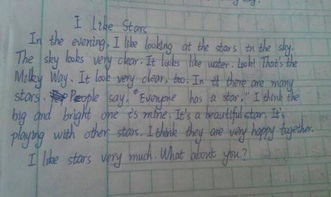 I like Stars
In the evening, I like looking at the stars in the sky.
The sky looks very clear. It looks like water. Look! That's the
Milky Way. It look very clear, too. In it there are many
stars. People say, "Everyone has a star." I think the
big and bright one is mine. It's a beautiful star. It's
playing with other stars. I think they are very happy together.
I like stars very much. What about you?